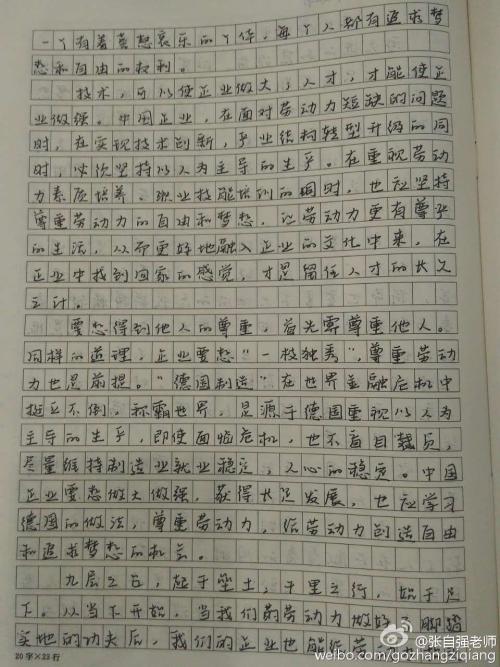 一个有着喜怒哀乐的个体，每个人都有追求梦
想和自由的权利。
技术，可以使企业做大；人才，才能使企
业做强。中国企业，在面对劳动力短缺的问题
时，在实现技术创新，产业结构转型升级的同
时，必须坚持以人为主导的生产。在重视劳动
力素质培养、职业技能培训的同时，也应坚持
尊重劳动力的自由和梦想，让劳动力更有尊严
的生活，从而更好地融入企业的文化中来，在
企业中找到回家的感觉，才是留住人才的长久
之计。
要想得到他人的尊重，首先要尊重他人。
同样的道理，企业要想“一枝独秀”，尊重劳动
力也是前提。“德国制造”在世界金融危机中
挺立不倒，称霸世界，是源于德国重视以人为
主导的生产，即使面临危机，也不盲目裁员，
尽量维持制造业就业稳定，人心的稳定。中国
企业要想做大做强，获得长足发展，也应学习
德国的做法，尊重劳动力，给劳动力创造自由
和追求梦想的机会。
九层之台，起于垒土，千里之行，始于足
下。从当下开始，当我们的劳动力做好 脚踏
实地的功夫后，我们的企业也能
20字×23行
@张自强老师
weibo.com/gozhangziqiang